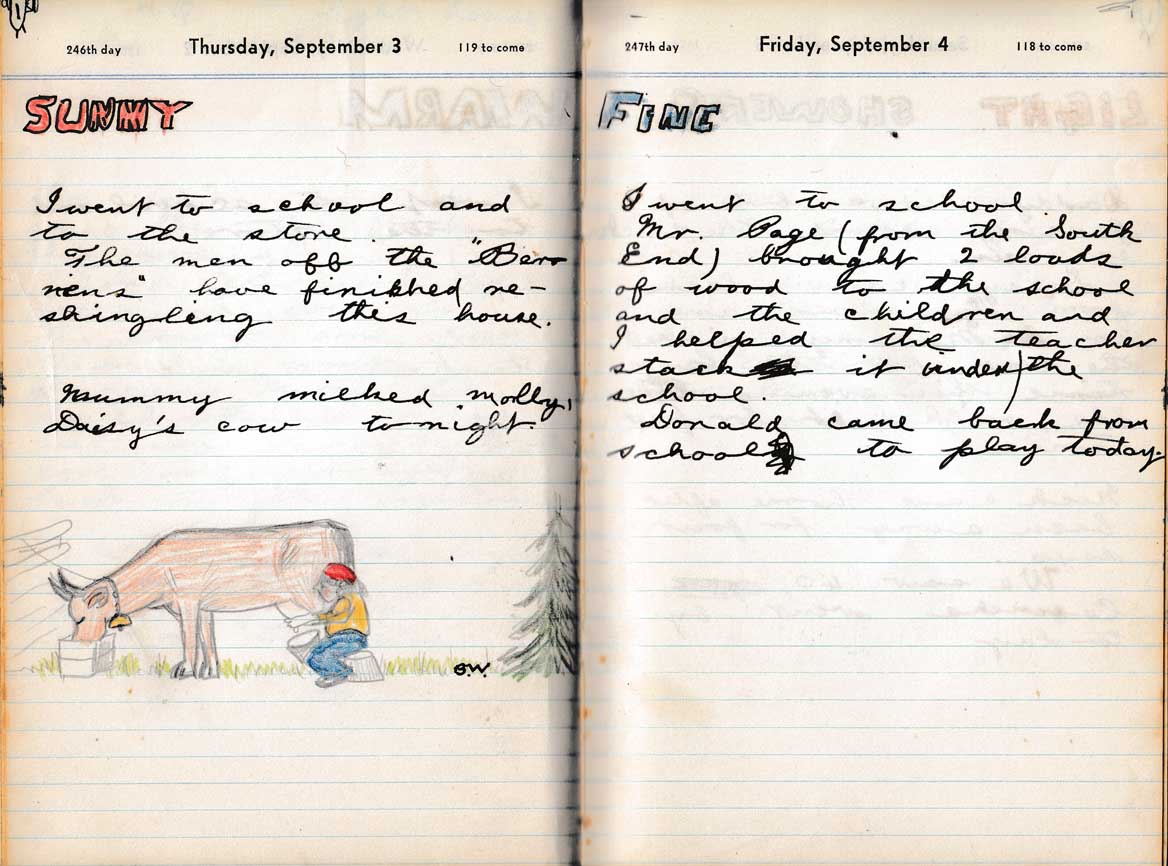 246th day Thursday, September 3 119 to come
SUNNY
I went to school and
to the store.
The men off the "Ber-
nens" have finished re-
shingleing this house.
Mummy milked Molly,
Daisy's cow tonight.
S.W.
247th day Friday, September 4 118 to come
FINE
I went to school.
Mr. Page (from the South
End) brought 2 loads
of wood to the school
and the children and
I helped the teacher
stack it under the
school.
Donald came back from
school to play today.